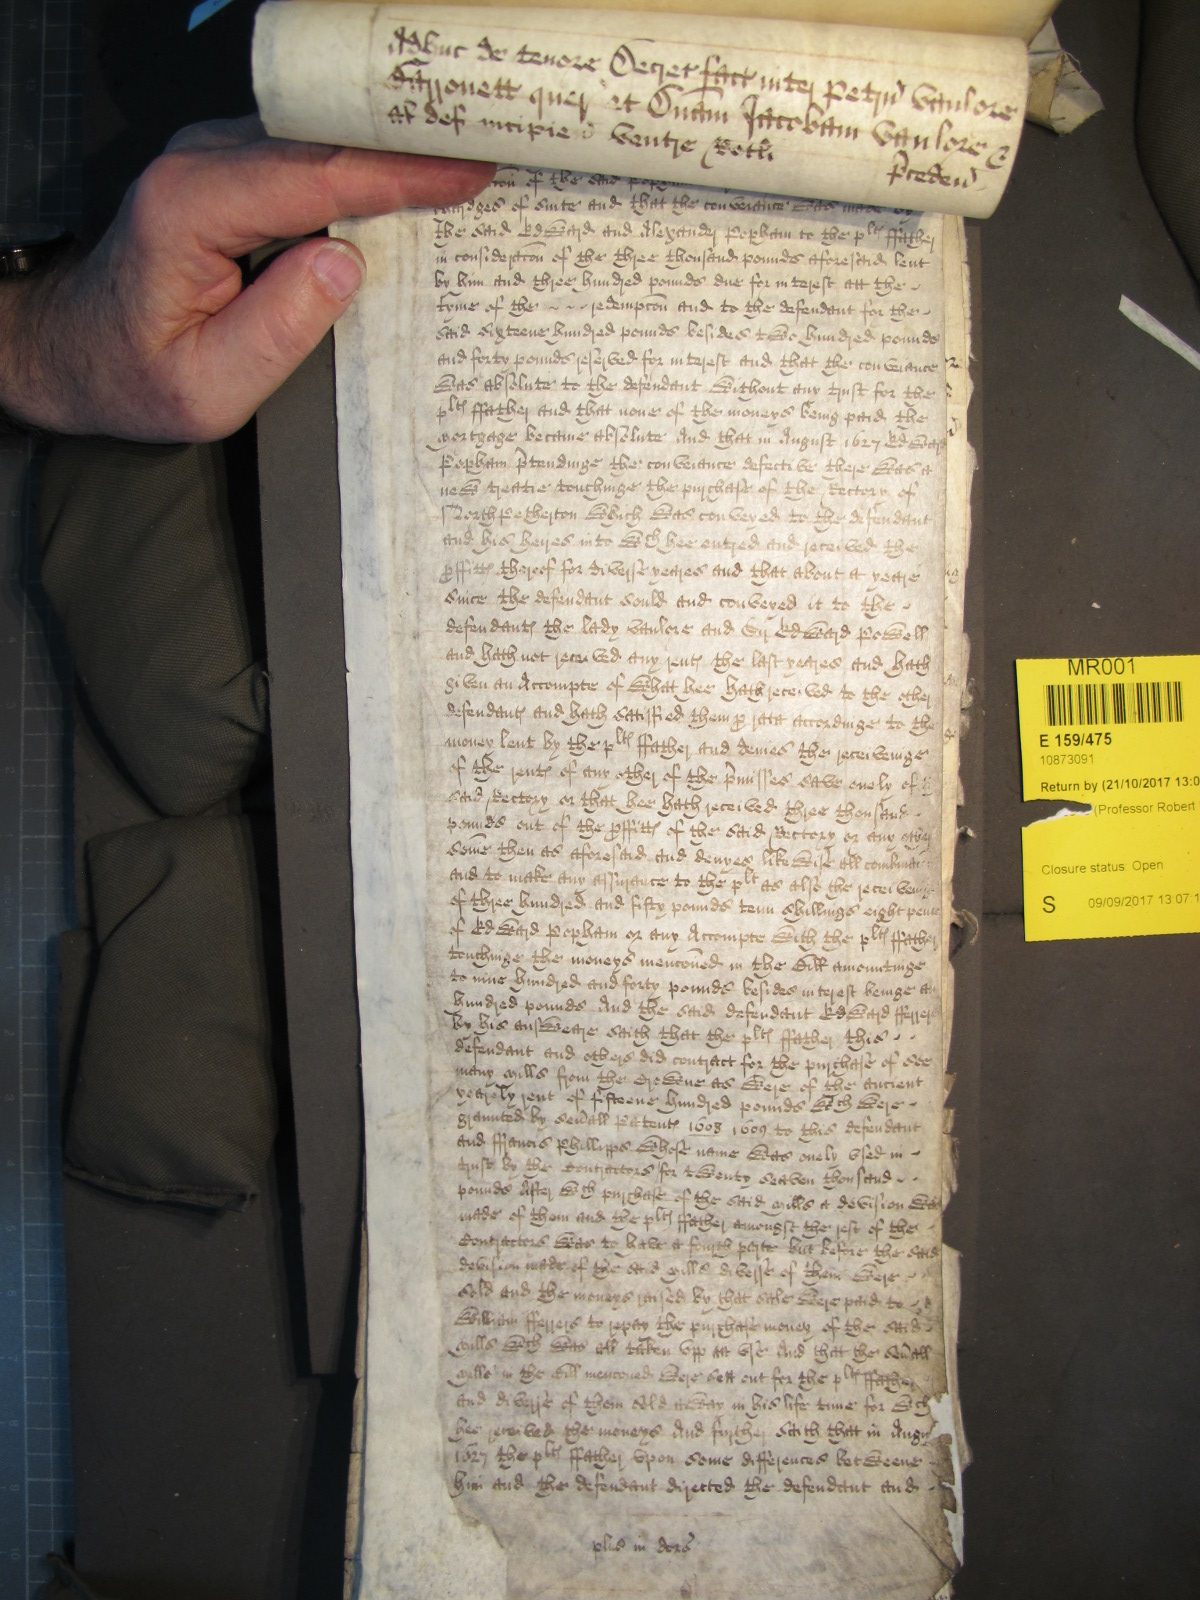 Adhuc de tenore Decret fact inter Petru Vanlore
Baronett quer et Dnam Jacobam Vanlore &
al def incipien ventre Rotli
Preceden
of the said Popham
chardges of suite and that the conveiance was made by
the said Edward and Alexandr Popham to the plts ffather
in consideracon of the three thousand pounds aforesaid lent
by him and three hundred pounds due for interest att the
tyme of the redempcon and to the defendant for the
said sixteene hundred pounds besides two hundred pounds
and forty pounds reserved for interest and that the conveiance
was absolute to the defendant without any trust for the
plts ffather and that none of the moneys being paid the
mortgage became absolute And that in August 1627 Edward
Popham ptendinge the conveiance defective there was a
new treatie touchinge the purchase of the Rectory of
Northpetherton which was conveyed to the defendant
and his heires into wch hee entred and received the
proffitts thereof for diverse yeares and that about a yeare
since the defendant sould and conveyed it to the
defendants the lady Vanlore and Sr Edward Powell
and hath not received any rents the last yeares and hath
given an Accompte of what hee hath received to the other
defendants and hath satisfied them p rata accordinge to the
money lent by the plts ffather and denies the receiveinge
of the rents of any other of the pmisses save onely of
said Rectory or that hee hath received three thousand
pounds out of the proffitts of the said Rectory or any other
some then as aforesaid and denyes likewise all combinac
and to make any assurance to the plt as also the receiveing
of three hundred and fifty pounds tenn shillings eight pence
of Edward Popham or any Accompte with the plts ffather
touchinge the moneys menconed in the Bill amountinge
to nine hundred and forty pounds besides interest beinge
hundred pounds And the said defendant Edward fferrers
by his answeare saith that the plts ffather this
defendant and others did contract for the purchase of soe
many mills from the Crowne as were of the ancient
yearely rent of fifteene hundred pounds wch were
graunted by severall Patents 1608 1609 to this defendant
and ffrancis Phillipps whose name was onely vsed in
trust by the Contractors for twenty seaven thousand
pounds After wch purchase of the said mills a devision was
made of them and the plts ffather amongst the rest of the
Contractors was to have a fourth parte but before the said
devision made of the said mills diverse of them were
sold and the moneys raised by that sale were paid to
William fferrers to repay the purchase money of the said
mills wch was all taken vpp att vse And that the severall
mills in the Bill menconed were sett out for the plts ffather
and diverse of them sold away in his life time for wch
hee received the moneys And further saith that in Augu
1627 the plts ffather vpon some differences betweene
him and the defendant directed the defendant and
plus in dors
MR001
E 159/475
10873091
Return by (21/10/2017 13:0
(Professor Robert
Closure status Open
S 09/09/2017 13:07:1